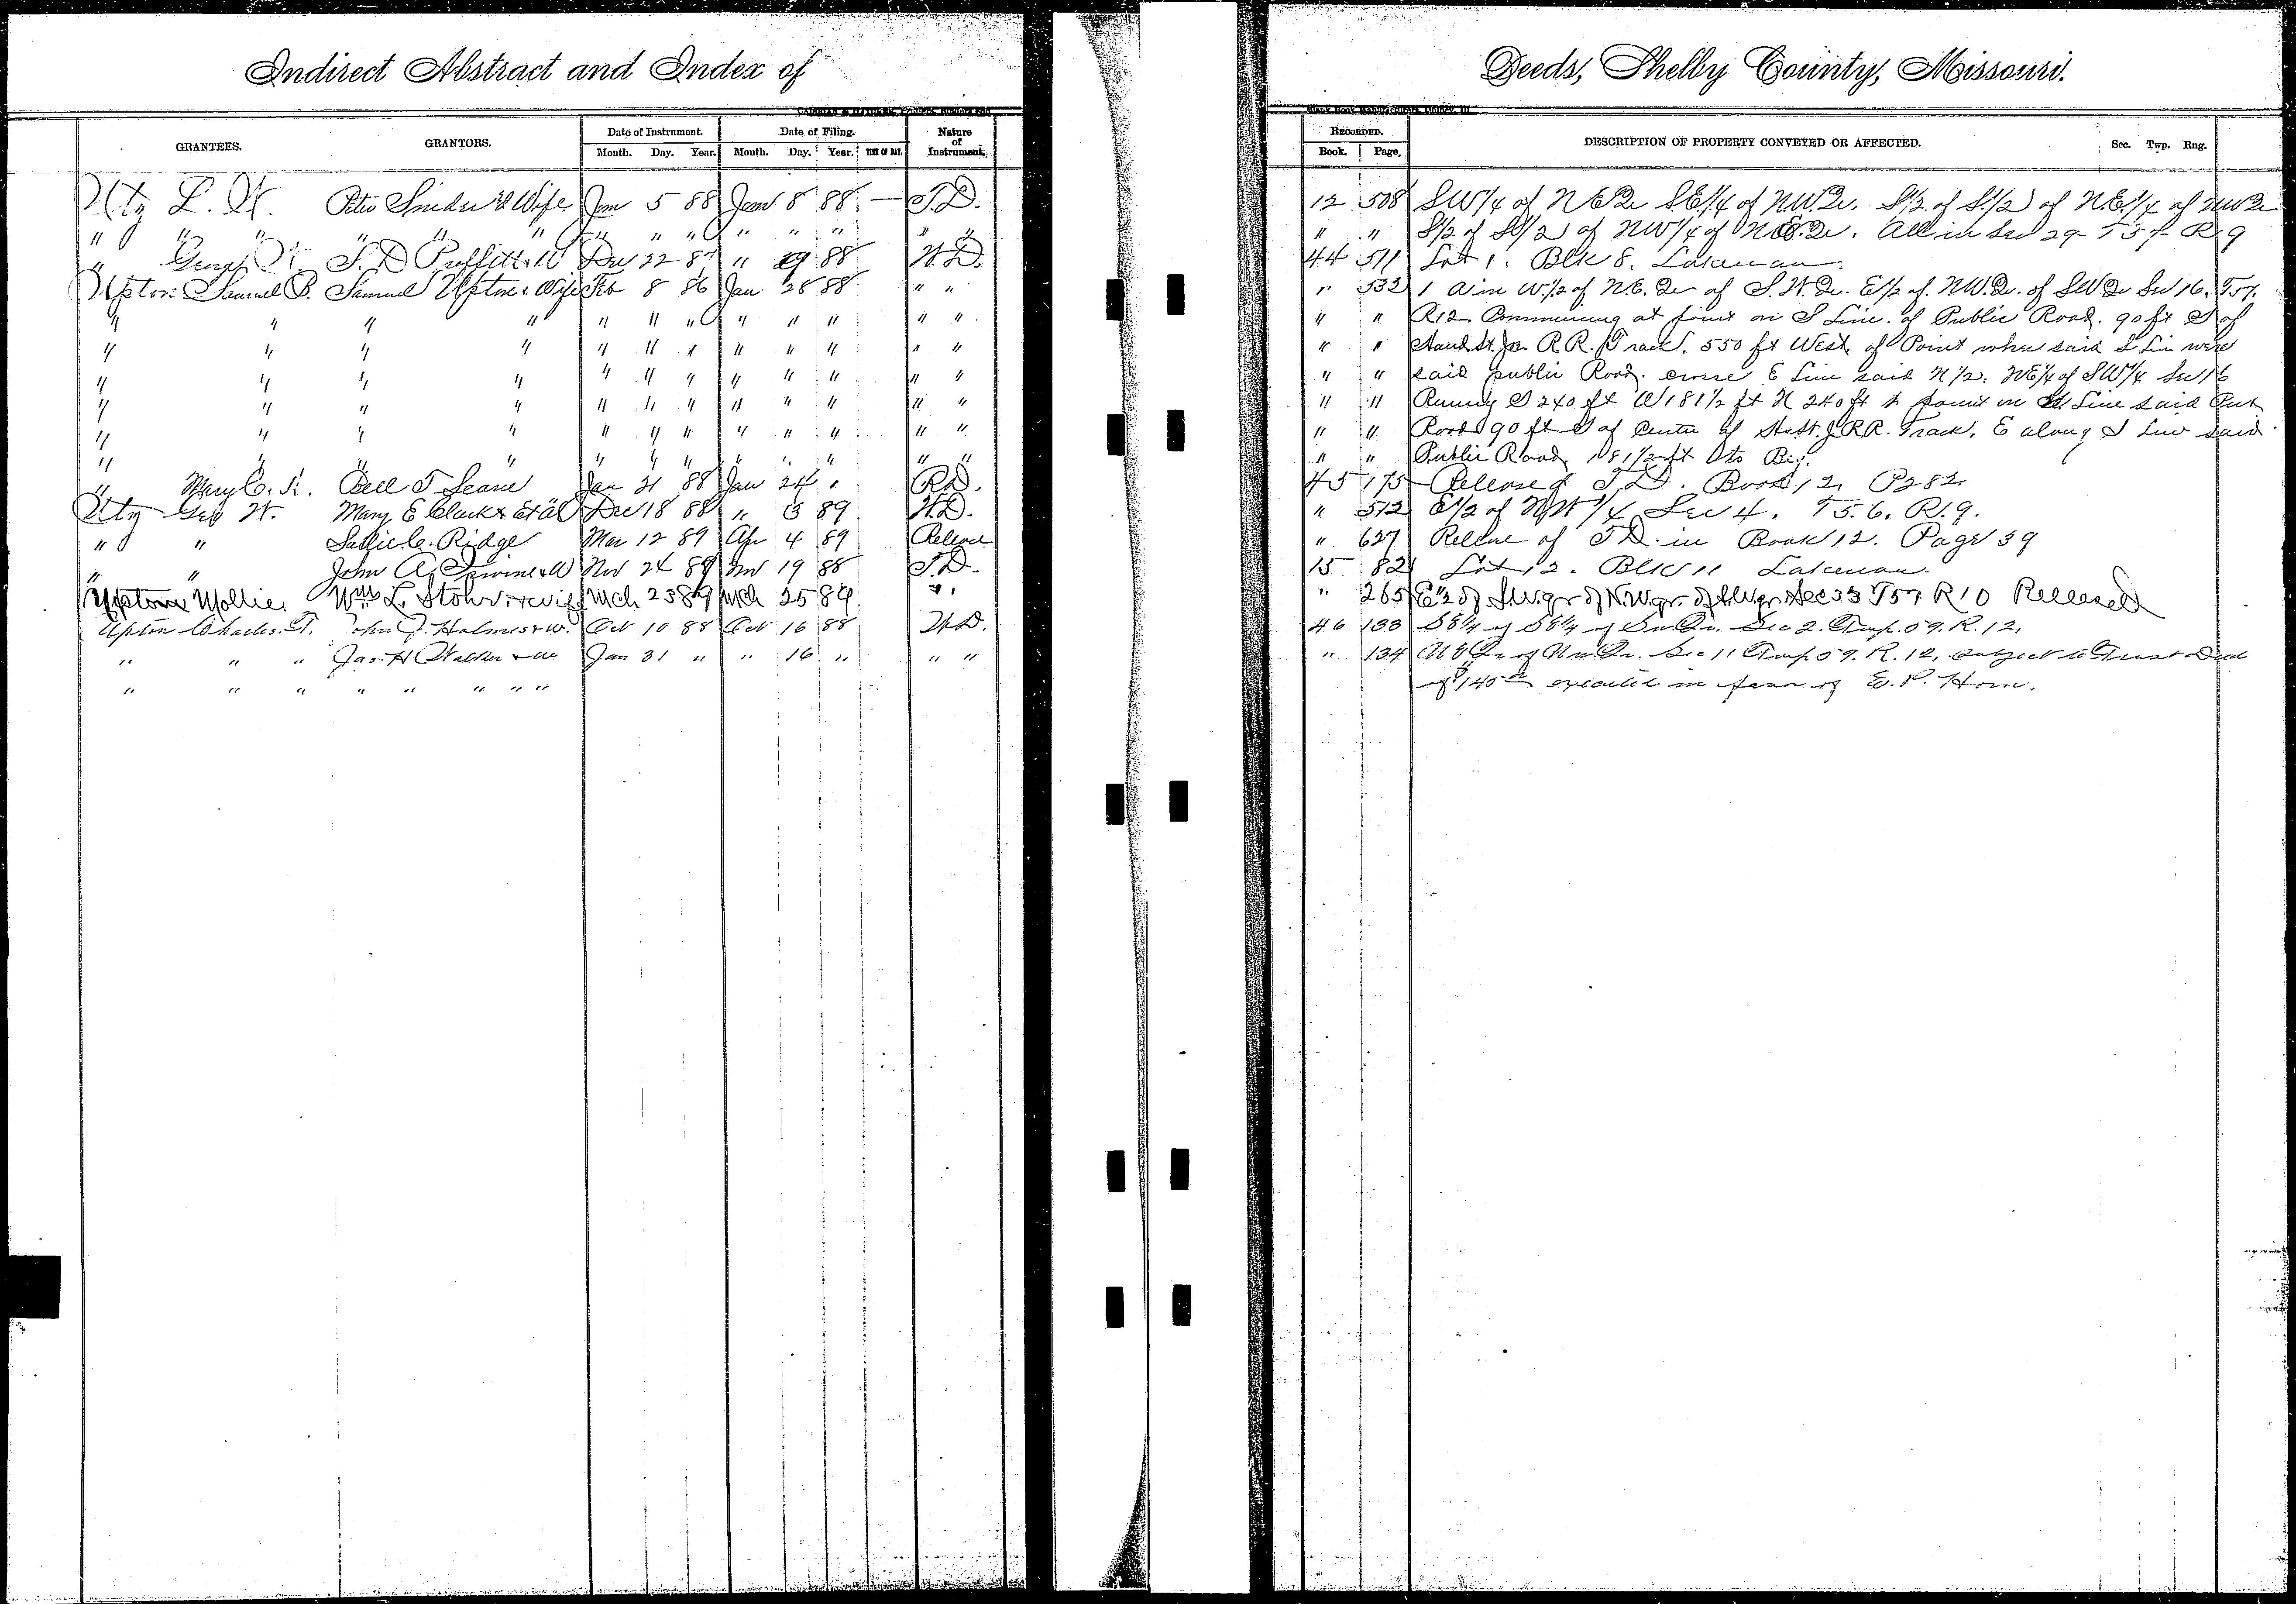 Indirect Abstract and Index of Deeds, Shelby County, Missouri.
GRANTEES. GRANTORS. Date of Instrument. Date of Filing. Nature of Instrument. RECORDED. DESCRIPTION OF PROPERTY CONVEYED OR AFFECTED. Sec. Twp. Rng.
Month. Day. Year. Month. Day. Year. TIME OF DAY. Book. Page.
Uty L. H. Peter Snider & Wife Jan 5 88 Jan 8 88 — T.D. 12 508 SW 1/4 of N E Qr S.E. 1/4 of N.W. Qr. S 1/2 of S. 1/2 of N.E. 1/4 of NW Qr
" " " " " " " " " " " " " " " " S 1/2 of S 1/2 of NW 1/4 of N.E. Qr. All in Sec 29 T 57 R 9
" George W. S. D Proffitt & W Dec 22 87 " 19 88 W.D. 44 511 Lot 1. Blk 8. Lakenan.
Upton Samuel P. Samuel Upton & Wife Feb 8 86 Jan 28 88 " " " 532 1 A in W. 1/2 of N.E. Qr of S.W. Qr. E 1/2 of N.W. Qr. of SW Qr Sec 16. T57.
" " " " " " " " " " " " " " R12. Commencing at point on S Line of Public Road. 90 ft S of
" " " " " " " " " " " " " " Hand St. Jo. R.R. Track. 550 ft West of Point where said S Lin
" " " " " " " " " " " " " " said public Road. E Line said N 1/2. NE 1/4 of SW 1/4 Sec 16
" " " " " " " " " " " " " " S 240 ft W 181 1/2 ft N 240 ft to point on Line said
" " " " " " " " " " " " " " Road 90 ft S of Center of H & St. J. R.R. Track. E along S Line said
" " " " " " " " " " " " " " Public Road 181 1/2 ft to Beg.
" Mary C. Bell T Jan 21 88 Jan 24 " R.D. 45 175 Release of T.D. Book 12, P 282
Uty Geo W. Mary E Clark & Et al Dec 18 88 " 3 89 W.D. " 512 E 1/2 of NW 1/4 Sec 4. T 5.6. R.9.
" " Sallie C. Ridge Mar 12 89 Apr 4 89 Release " 627 Release of T.D. in Book 12. Page 39
" " John A. & W Nov 24 88 Nov 19 88 T.D. 15 82 Lot 12. Blk 11 Lakenan.
Upton Mollie. Wm L. Stohr & wife Mch 25 89 Mch 25 89 " " 265 E 1/2 of S.W. qr of N.W. qr. of S.W. qr. Sec 33 T57 R10 Released
Upton Charles. T. John J. Holmes & w. Oct 10 88 Oct 16 88 W.D. 46 133 SE 1/4 of SE 1/4 of Qr. Sec 2. Twp. 59. R. 12.
" " " Jas. H Walker & w Jan 31 " " 16 " " " " 134 N.E. Qr of N.W. Qr. Sec 11 Twp. 59. R. 12, subject to Trust Deed
" " " " " " " " of $140 executed in favor of E. P. Horn.